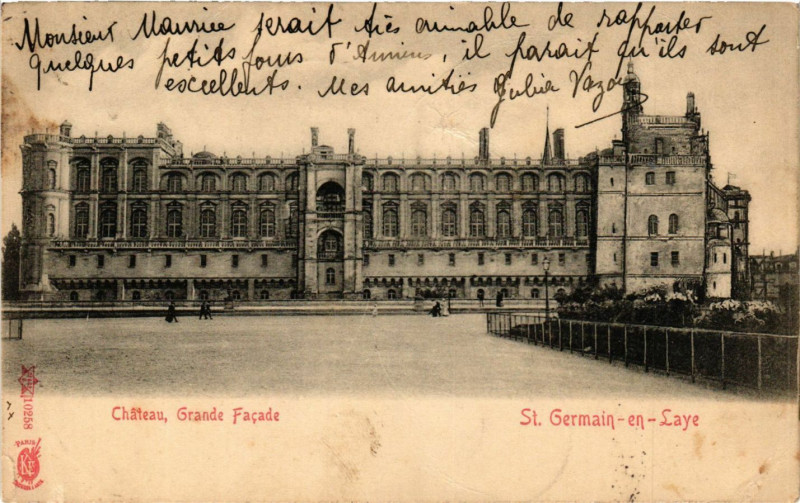 Monsieur Maurice serait très aimable de rapporter
quelques petits fours d'Amiens, il parait qu'ils sont
excellents. Mes amitiés Julia
10258
Château, Grande Façade
St. Germain-en-Laye
PARIS